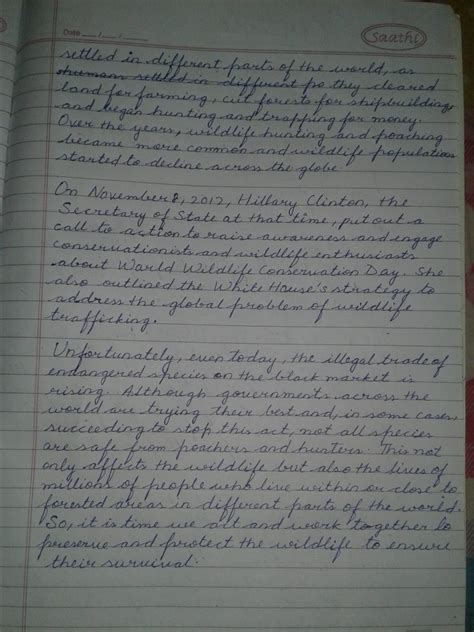 Date __/__/__ Saathi
settled in different parts of the world, as
humans settled in different po they cleared
land for farming, cut forests for shipbuilding,
and began hunting and trapping for money.
Over the years, wildlife hunting and poaching
became more common and wildlife populations
started to decline across the globe.
On November 8, 2012, Hillary Clinton, the
Secretary of State at that time, put out a
call to action to raise awareness and engage
conservationists and wildlife enthusiasts
about World Wildlife Conservation Day. She
also outlined the White House's strategy to
address the global problem of wildlife
trafficking.
Unfortunately, even today, the illegal trade of
endangered species on the black market is
rising. Although governments across the
world are trying their best and, in some cases,
succeeding to stop this act, not all species
are safe from poachers and hunters. This not
only affects the wildlife but also the lives of
millions of people who live within or close to
forested areas in different parts of the world.
So, it is time we act and work together to
preserve and protect the wildlife to ensure
their survival.